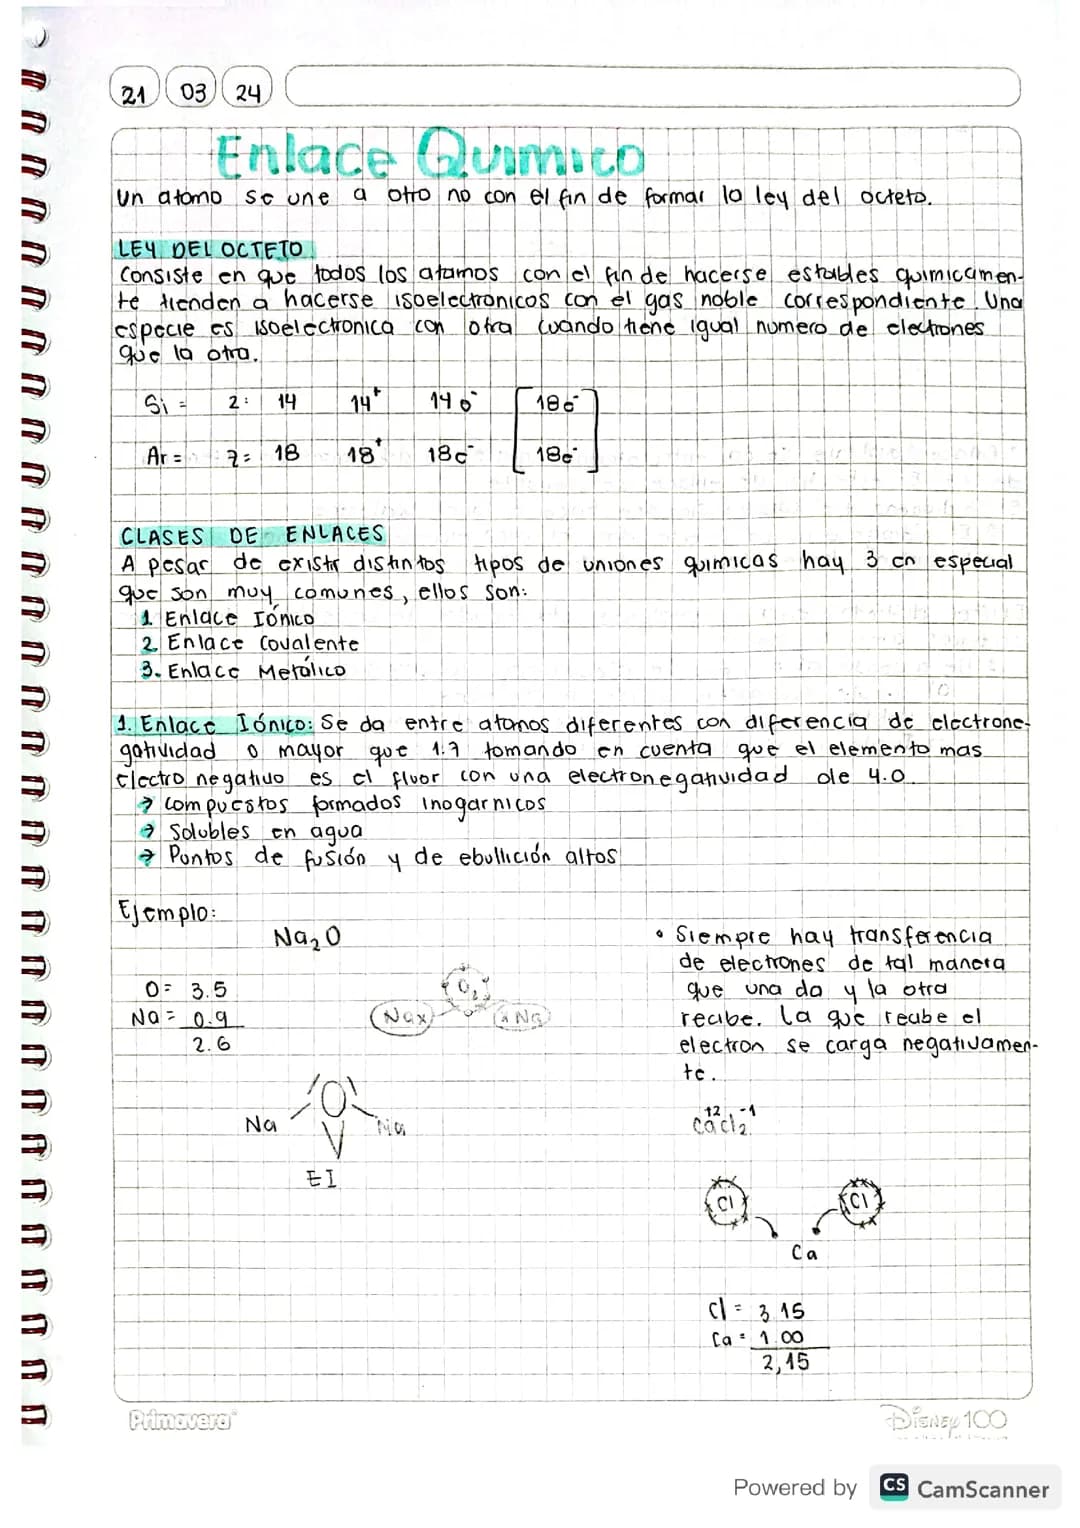 21 03 24
Enlace Quimico
Un atomo se une a otro no con el fin de formar la ley del octeto.
LEY DEL OCTETO
Consiste en que todos los atamos con el fin de hacerse estables quimicamen-
te tienden a hacerse isoelectronicos con el gas noble correspondiente. Una
especie es isoelectronica con otra cuando tiene igual numero de electrones
que la otra.
Si = z: 14 14⁺ 14e⁻ 18e⁻
Ar = z= 18 18⁺ 18e⁻ 18e⁻
CLASES DE ENLACES
A pesar de existir distintos tipos de uniones quimicas hay 3 en especial
que son muy comunes, ellos son:
1. Enlace Iónico
2. Enlace Covalente
3. Enlace Metálico
1. Enlace Iónico: Se da entre atomos diferentes con diferencia de electrone-
gatividad o mayor que 1.7 tomando en cuenta que el elemento mas
electro negativo es el fluor con una electronegatividad de 4.0.
→ Compuestos formados inogarnicos
→ Solubles en agua
→ Puntos de fusión y de ebullición altos
Ejemplo:
Na₂O
O= 3.5
Na= 0.9
2.6
O₂
Nax xNa
O
Na Na
EI
• Siempre hay transferencia
de electrones de tal manera
que una da y la otra
recibe. La que recibe el
electron se carga negativamen-
te.
+2 -1
CaCl₂
Cl Cl
Ca
Cl = 3.15
Ca = 1.00
2,15
Primavera
Disney 100
Powered by CS CamScanner